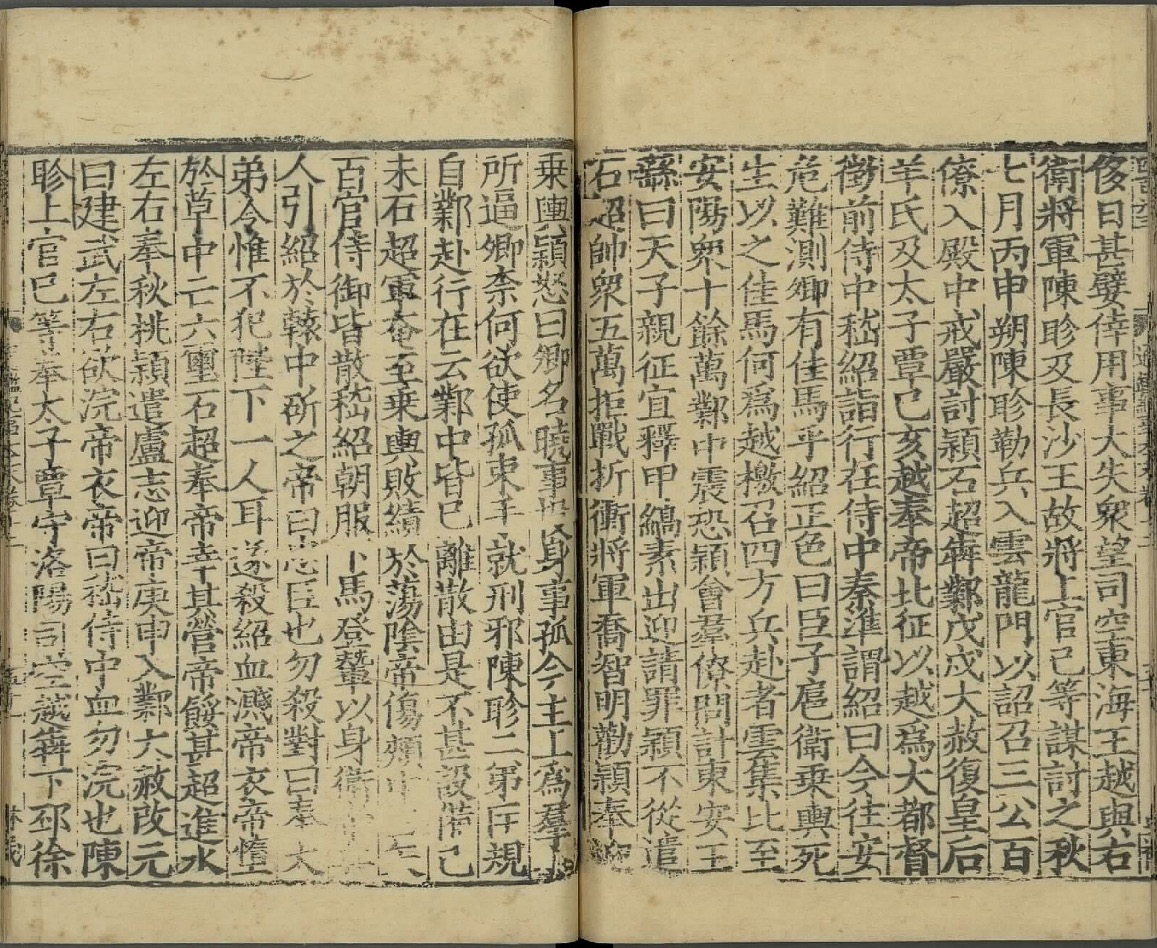 侈日甚嬖倖用事大失衆望司空東海王越與右
衛將軍陳眕及長沙王故將上官已等謀討之秋
七月丙申朔陳眕勒兵入雲龍門以詔召三公百
僚入殿中戒嚴討頴石超犇鄴戊戌大赦復皇后
羊氏及太子覃己亥越奉帝北征以越爲大都督
徵前侍中嵇紹詣行在侍中秦準謂紹曰今往安
危難測卿有佳馬乎紹正色曰臣子扈衛乗輿死
生以之佳馬何爲越檄召四方兵赴者雲集比至
安陽衆十餘萬鄴中震恐頴會羣僚問計東安王
繇曰天子親征宜釋甲縞素出迎請罪頴不從遣
石超帥衆五萬拒戰折衝將軍喬智明勸頴奉迎
乗輿頴怒曰卿名曉事投身事孤今主上爲羣小
所逼卿柰何欲使孤束手就刑邪陳眕二弟匡規
自鄴赴行在云鄴中皆已離散由是不甚設備己
未石超軍奄至乗輿敗績於蕩陰帝傷頰中三矢
百官侍御皆散嵇紹朝服下馬登輦以身衛
人引紹於轅中斫之帝曰忠臣也勿殺對曰奉太
弟令惟不犯陛下一人耳遂殺紹血濺帝衣帝墮
於草中亡六璽石超奉帝幸其營帝餒甚超進水
左右奉秋桃頴遣盧志迎帝庚申入鄴大赦改元
曰建武左右欲浣帝衣帝曰嵇侍中血勿浣也陳
眕上官已等奉太子覃守洛陽司空越犇下邳徐